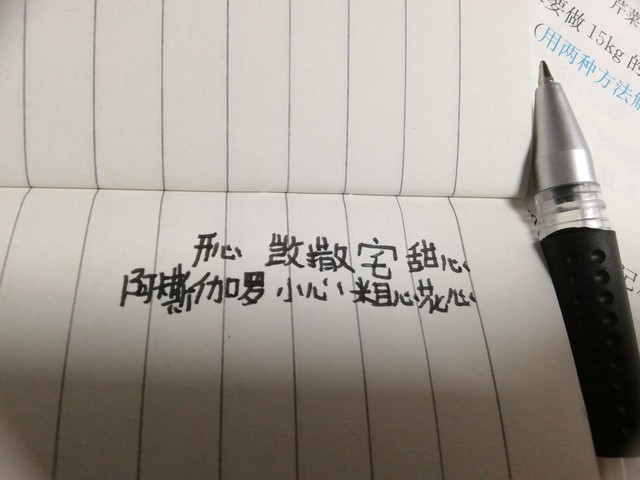 芹菜
要做15kg的
(用两种方法解
开心 散撒宅 甜心
阿斯伽罗 小心 粗心花心